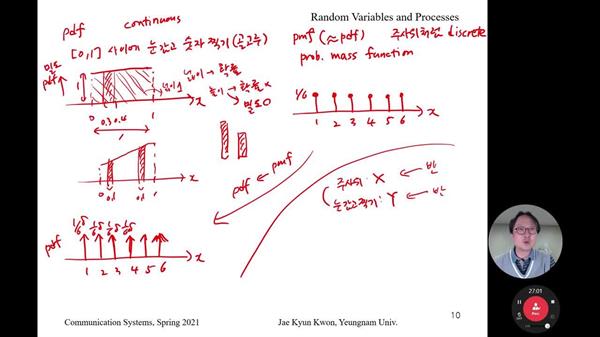 Random Variables and Processes
pdf continuous
[0,1] 사이에 눈감고 숫자 찍기 (골고루)
pmf (≈pdf) 주사위처럼 discrete
prob. mass function
밀도
pdf
1
넓이 1
넓이 → 확률
높이 → 확률 x
↳ 밀도 O
0 0.3 0.4 1 x
1
1/6
1 2 3 4 5 6 x
0 0.1 0.1 1 x
pdf ← pmf
주사위: X ← 반
눈감고찍기: Y ← 반
1/6 δ 1/6 δ 1/6 δ 1/6 δ
pdf
1 2 3 4 5 6 x
27:01
Communication Systems, Spring 2021
Jae Kyun Kwon, Yeungnam Univ.
10